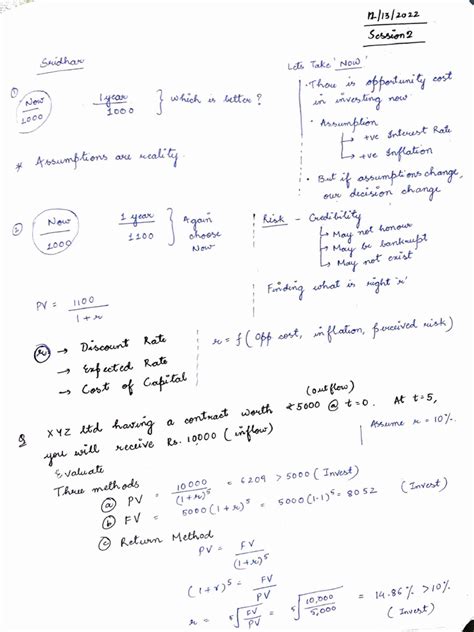 12/13/2022
Session 2
Sridhar
① Now 1000 1 year 1000 } which is better?
* Assumptions are reality.
Lets Take 'Now'
· There is opportunity cost
in investing now.
· Assumption
↳ +ve Interest Rate
↳ +ve Inflation
· But if assumptions change,
our decision change
② Now 1000 1 year 1100 } Again choose Now
Risk - Credibility
↳ May not honour
↳ May be bankrupt
↳ May not exist
Finding what is right 'r'
PV = 1100 / 1+r
(r) → Discount Rate
→ Expected Rate
→ Cost of Capital
r = f ( Opp cost, inflation, perceived risk)
Q XYZ ltd having a contract worth ₹5000 (outflow) @ t=0. At t=5,
you will receive Rs. 10000 (inflow)
Assume r = 10%.
Evaluate
Three methods
ⓐ PV = 10000 / (1+r)^5 = 6209 > 5000 (Invest)
ⓑ FV = 5000(1+r)^5 = 5000(1.1)^5 = 8052 (Invest)
ⓒ Return Method
PV = FV / (1+r)^5
(1+r)^5 = FV / PV
r = 5√(FV/PV) = 5√(10,000/5,000) = 14.86% > 10% (Invest)